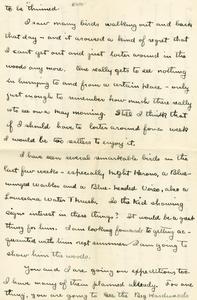 to be thinned.
I saw many birds walking out and back
that day - and it aroused a kind of regret that
I can't get out and just loiter around in the
woods any more. One really gets to see nothing
in hurrying to and from a certain place - only
just enough to remember how much there really
is to see on a May morning. Still I think that
if I should have to loiter around for a week
I would be too restless to enjoy it.
I have seen several remarkable birds in the
last few weeks - especially Night Herons, a Blue-
winged Warbler and a Blue-headed Vireo, also a
Louisiana Water Thrush. Is the kid showing
signs interest in these things? It would be a great
thing for him. I am looking forward to getting ac-
quainted with him next summer. I am going to
show him the woods.
You and I are going on expeditions too.
I have many of them planned already. For one
thing, you are going to see the Big Hardwoods